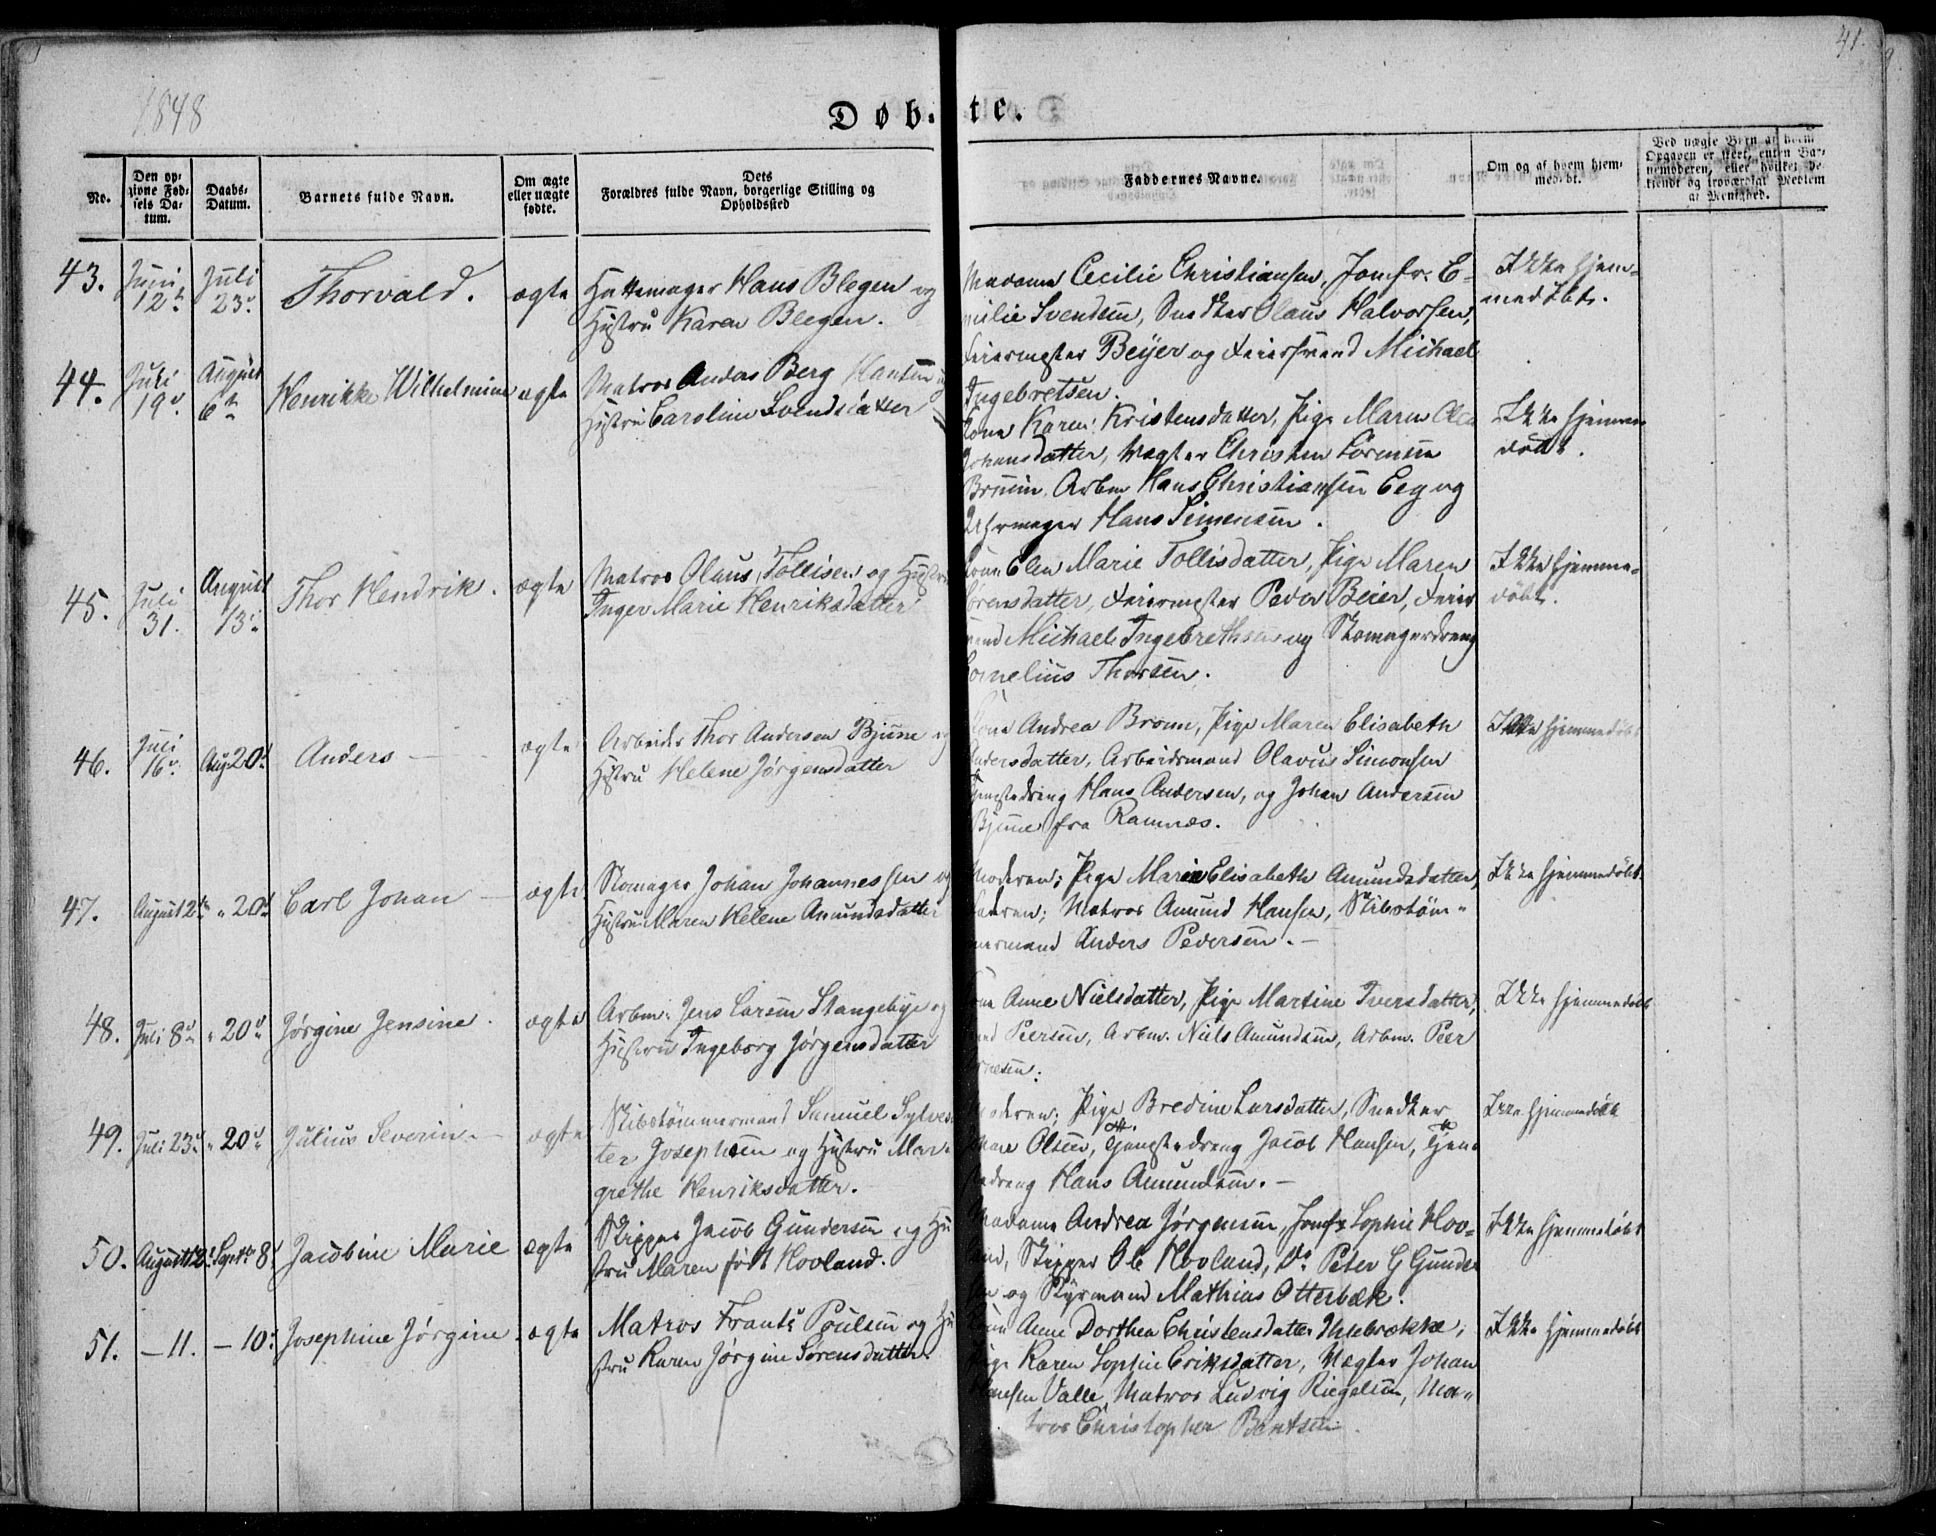 1848
41.
Døb-te.
No.
Den op-
givne Fød-
sels Da-
tum.
Daabs-
Datum.
Barnets fulde Navn.
Om ægte
eller uægte
fødte.
Dets
Forældres fulde Navn, borgerlige Stilling og
Opholdssted
Faddernes Navne.
Om og af hvem hjem-
medøbt.
Ved uægte Børn af hvem
Opgaven er skeet, enten Bar-
nemoderen, eller hvilket be-
kjendt og troværdigt Medlem
af Menighed.
43.
Juni
12te
Juli
23de
Thorvald.
ægte
Hattemager Hans Blegen og
Hustru Karen Blegen.
Madame Cecilie Christiansen, Jomfr. E-
milie Svendsen, Snedker Olaus Halvorsen,
Feiermester Beijer og Feiersvend Michael
Ingebretsen.
Ikke hjem-
medøbt.
44.
Juli
19de
August
6te
Henrikke Wilhelmine
ægte
Matros Anders Berg Hansen og
Hustru Caroline Svendsdatter
Kone Karen Kristensdatter, Pige Maren Olea
Johansdatter, Vægter Christen Sørensen
Bruun, Arbm Hans Christiansen Eeg og
Uhrmager Hans Simensen.
Ikke hjemme-
døbt.
45.
Juli
31.
August
13de
Thor Hendrik.
ægte
Matros Olaus Tollisen og Hustru
Inger Marie Henriksdatter
Kone Elen Marie Tollisdatter, Pige Maren
Sørensdatter, Feiermester Peder Beier, Feier
svend Michael Ingebrethsen og Skomagerdreng
Cornelius Thorsen.
Ikke hjemme-
døbt.
46.
Juli
16de
Aug 20de
Anders —
ægte
Arbeider Thor Andersen Bjune og
Hustru Helene Jørgensdatter
Kone Andrea Bronn, Pige Maren Elisabeth
Andersdatter, Arbeidsmand Olavus Simonsen
Tjenestedreng Hans Andersen, og Johan Andersen
Bjune fra Ramnæs.
Ikke hjemmedøbt
47.
August 2den
" 20de
Carl Johan —
ægte
Skomager Johan Johannessen og
Hustru Maren Helene Amundsdatter
Moderen; Pige Maren Elisabeth Amundsdatter,
Faderen; Matros Amund Hansen, Skibstøm-
mermand Anders Pedersen. —
Ikke hjemmedøbt.
48.
Juli 8de
" 20de
Jørgine Jensine.
ægte
Arbm. Jens Larsen Stangebye og
Hustru Ingeborg Jørgensdatter
Kone Anne Nielsdatter, Pige Martine Iversdatter,
Peersen, Arbm. Niels Amundsen, Arbm. Peer
Ikke hjemmedøbt
49.
Juli 23de
" 20de
Julius Severin. —
ægte
Skibstømmermand Samuel Sylves-
ter Josephsen og Hustru Mar-
grethe Henriksdatter.
Moderen; Pige Bredine Larsdatter, Snedker
Olsen, Tjenestedreng Jacob Hansen, Tjene-
stedreng Hans Amundsen. —
Ikke hjemmedøbt
50.
August 2den
Septbr 8de
Jacobine Marie
ægte
Skipper Jacob Gundersen og Hu
stru Maren født Hovland.
Madame Andrea Jørgensen, Jomfr Sophie Hov-
land, Skipper Ole Hovland, Do Peter G Gunder
sen og Styrmand Mathias Otterbæk.
Ikke hjemmedøbt
51.
— 11.
— 10.
Josephine Jørgine.
ægte
Matros Frants Poulsen og Hu
stru Karen Jørgine Sørensdatter.
Kone Anne Dorthea Christensdatter,
Pige Karen Sophie Eriksdatter, Vægter Johan
Hansen Valle, Matros Ludvig Riegelsen, Ma-
tros Christopher Bentsen.
Ikke hjemmedøbt